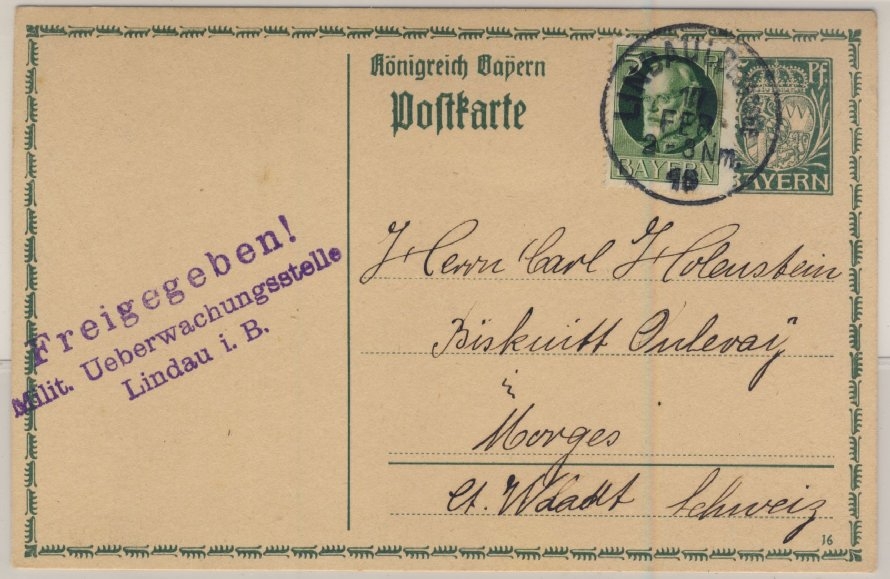 Königreich Bayern
Postkarte
5 Pf.
BAYERN
BAYERN
LINDAU
FEB.
2-3 Nm.
Freigegeben!
Milit. Ueberwachungsstelle
Lindau i. B.
Herrn Carl Holenstein
Biskuitt Oulevaÿ
in
Morges
Ct. Waadt Schweiz
16